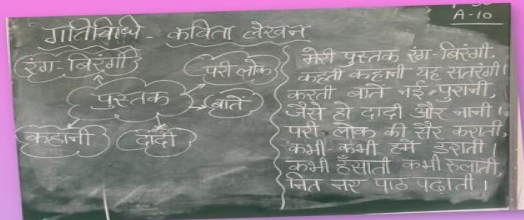 A-10
गतिविधि - कविता लेखन
रंग-बिरंगी
परी लोक
पुस्तक
बातें
कहानी
दादी
मेरी पुस्तक रंग-बिरंगी.
कहती कहानी यह सतरंगी।
करती बातें नई-पुरानी,
जैसे हो दादी और नानी।
परी लोक की सैर कराती,
कभी-कभी हमें डराती।
कभी हँसाती कभी रुलाती,
नित नए पाठ पढ़ाती।